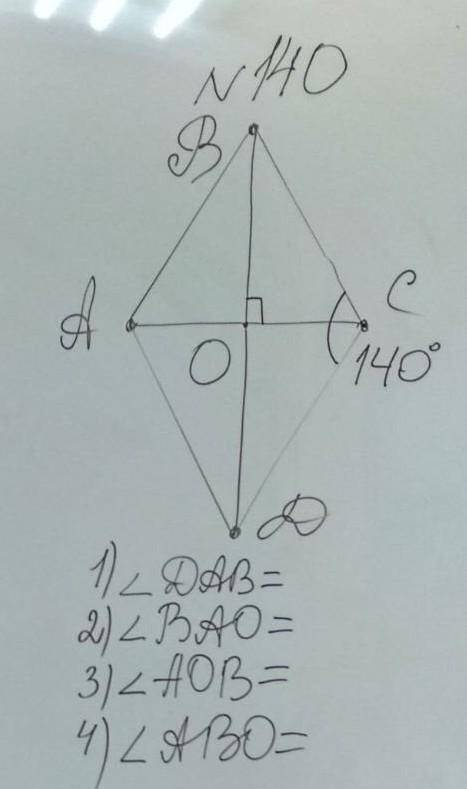 N 140
B
A
C
O
140°
D
1) ∠DAB=
2) ∠BAO=
3) ∠AOB=
4) ∠ABO=